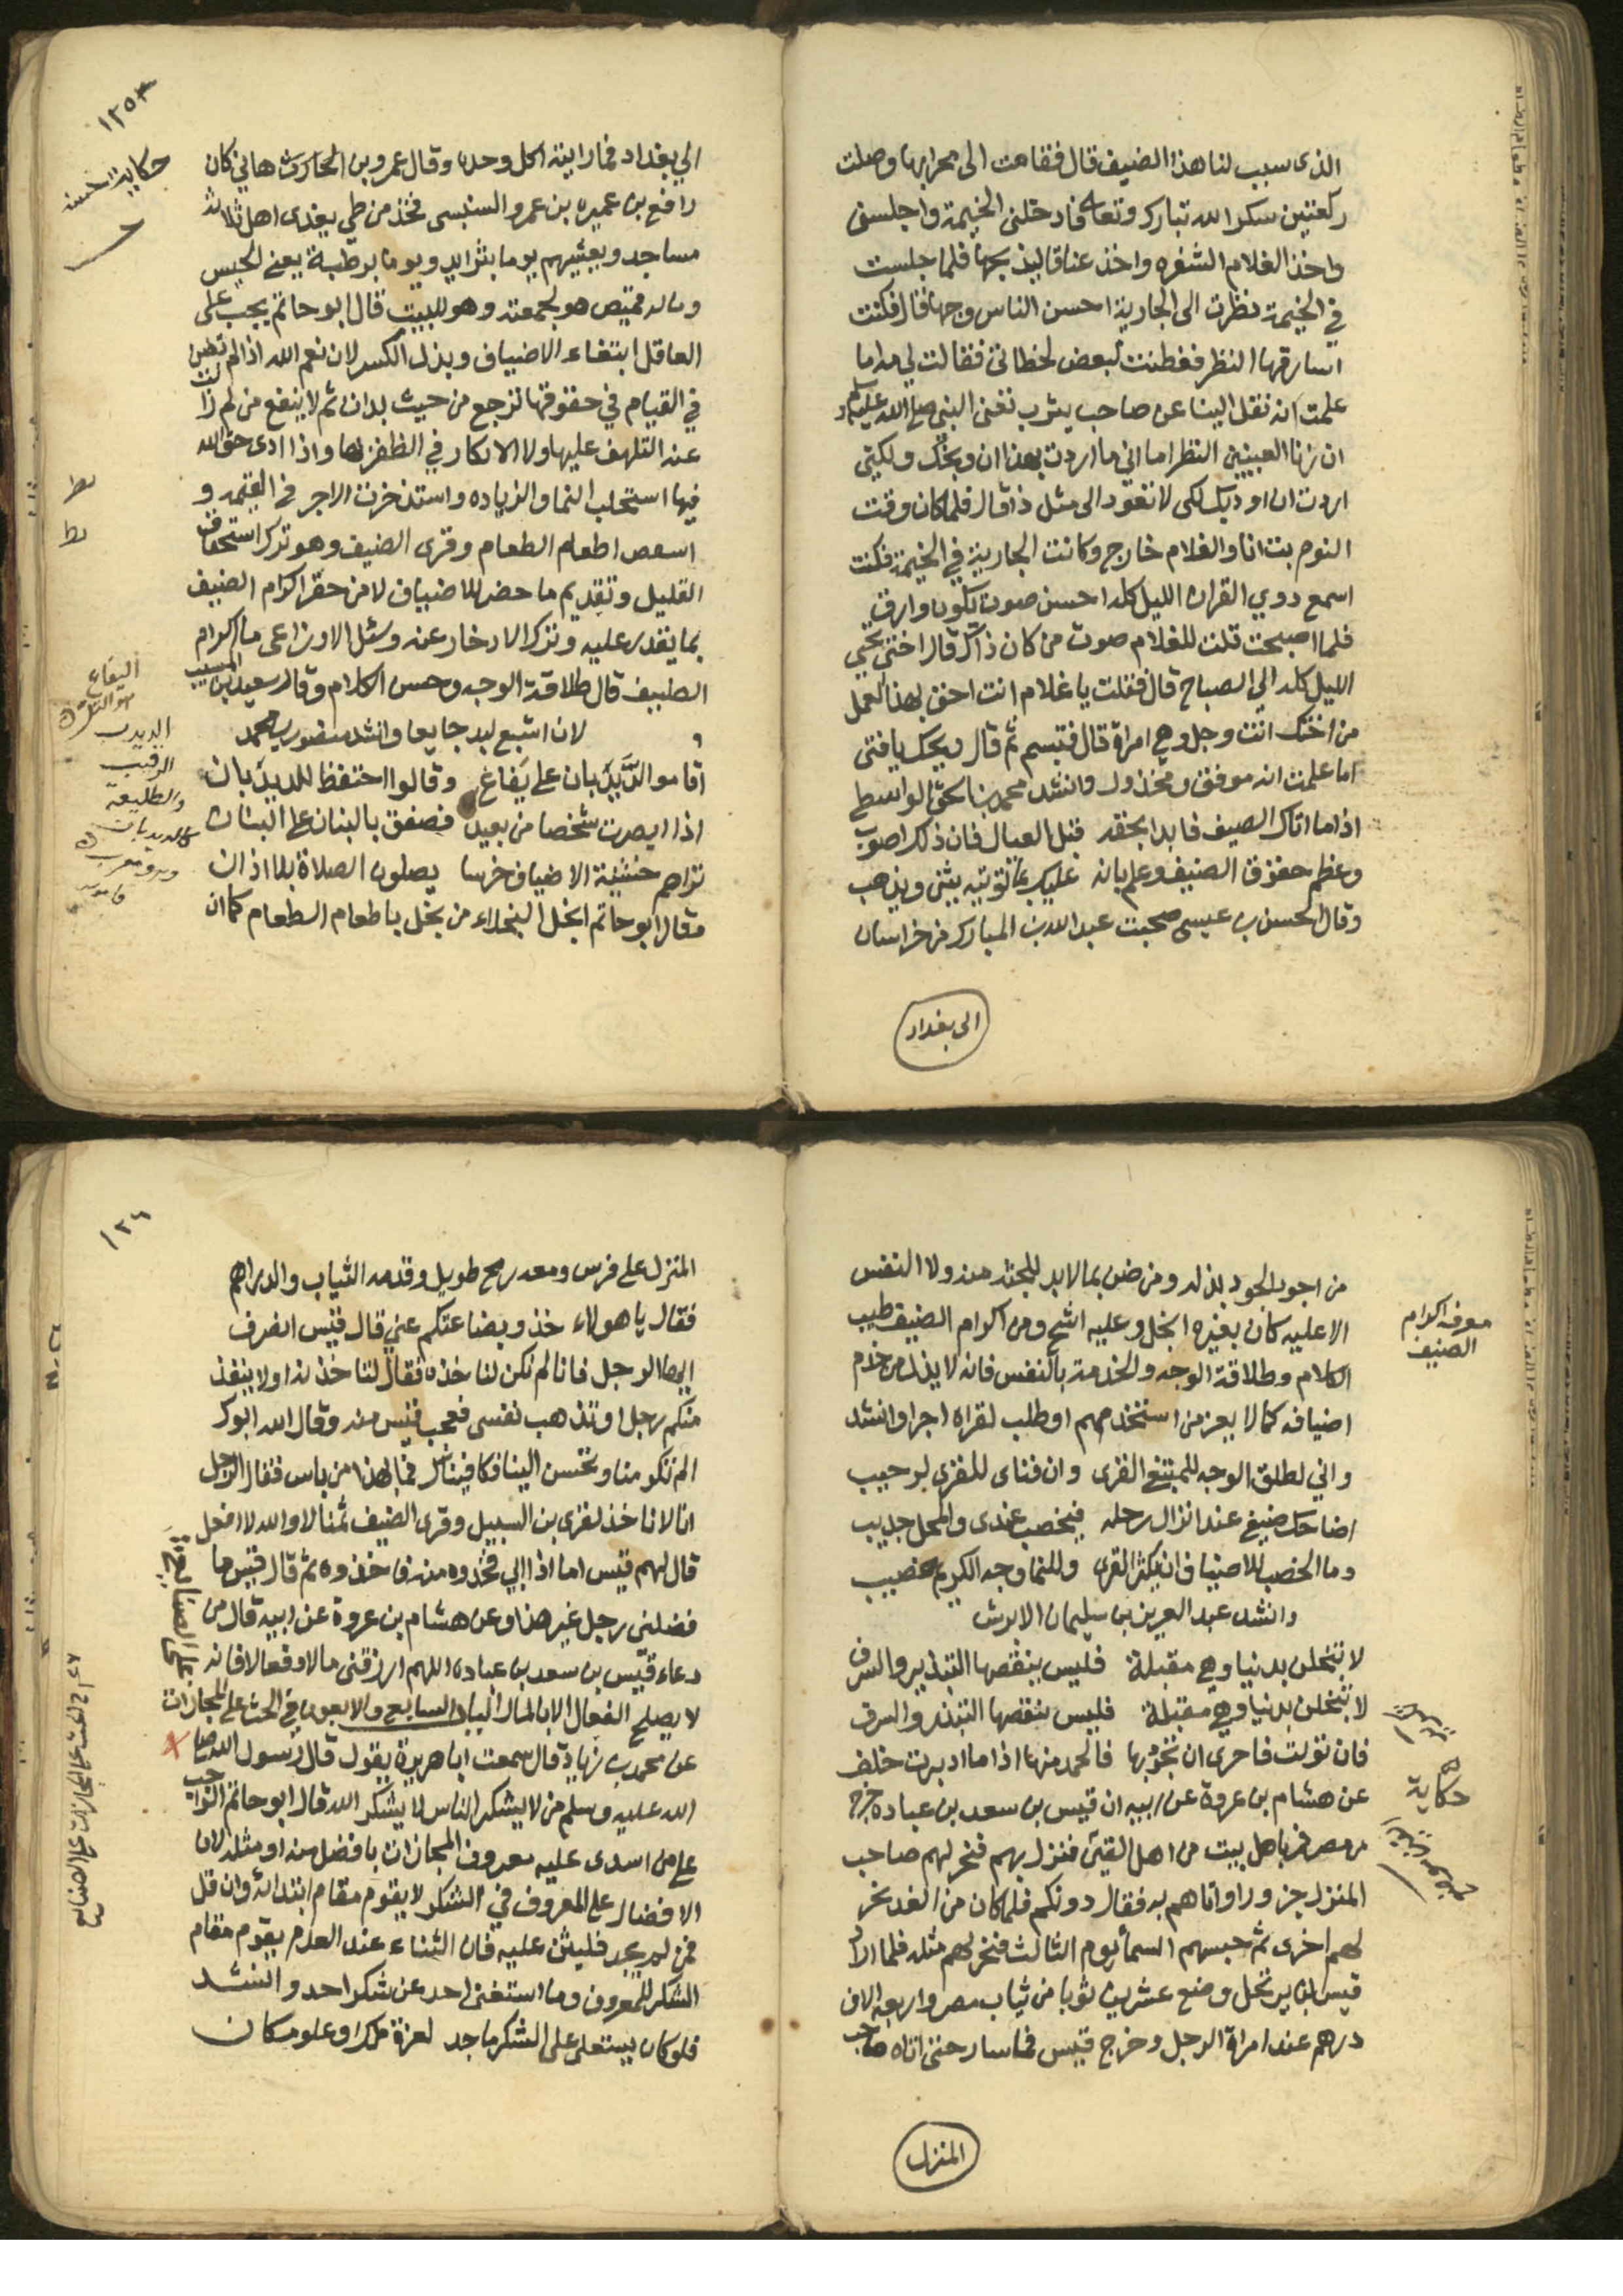 الذى سبب لنا هذا الضيف قال فقامت الى محرابها وصلت
ركعتين شكرا لله تبارك وتعالى فادخلنى الخيمة واجلسنى
واخذ الغلام الشفره واخذ عناقا ليذبحها فلما جلست
في الخيمة نظرت الى الجارية احسن الناس وجها قال فكنت
اسارقها النظر ففطنت لبعض لحظاتى فقالت لي مه اما
علمت انه نقل الينا عن صاحب يثرب تعنى النبى صلى الله عليه وسلم
ان زنا العينين النظر اما انى ما اردت بهذا ان وبخك ولكني
اردت ان اودبك لكى لا تعود الى مثل ذا قال فلما كان وقت
النوم بت انا والغلام خارج وكانت الجارية في الخيمة فكنت
اسمع دوي القران الليل كله احسن صوت يكون وارق
فلما اصبحت قلت للغلام صوت من كان ذاك قال اختى تحيي
الليل كله الي الصباح قال فقلت يا غلام انت احق بهذا العمل
من اختك انت رجل وهي امراة قال فتبسم ثم قال ويحك يا فتى
اما علمت انه موفق ومخذول وانشد محمد بن اسحق الواسطي
اذا ما اتاك الضيف فابدا بحقه قبل العيال فان ذلك اصوب
وعظم حقوق الضيف وعلم بانه عليك بما توتيه يثنى ويذهب
وقال الحسن بن عيسى صحبت عبد الله بن المبارك من خراسان
الى بغداد
حكاية حسنه
الي بغداد فما رايته اكل وحده وقال عمرو بن الحارث هانى كان
رافع بن عميره بن عمرو السنبسى فخذ من طي يغدى اهل ثلاثة
مساجد ويعشيهم يوما بثرايد ويوما برطبة يعنى الحيس
وماله قميص هو لجمعته وهو للبيت قال ابو حاتم يجب على
العاقل ابتغاء الاضياف وبذل الكسر لان نعم الله اذا لم تصن
في القيام في حقوقها ترجع من حيث بدات ثم لا ينفع من لم زالت
عنه التلهف عليها ولا الافكار في الظفر بها واذا ادى حق الله
فيها استجلب النما والزياده واستذخرت الاجر فى القيمه و
اطعام الطعام وقرى الضيف وهو ترك استحقار
القليل وتقديم ما حضر للاضياف لا من حقر اكرام الضيف
بما يقدر عليه وترك الادخار عنه وسئل الاوزاعى ما اكرام
الضيف قال طلاقة الوجه وحسن الكلام وقال سعيد بن المسيب
لان اشبع لبد جايعا وانشد منصور بن محمد
اقاموا الدَّيْدَبان على يَفاع وقالوا احتفظ للديدبان
اذا ابصرت شخصا من بعيد فصفق بالبنان على البنان
تراهم خشية الاضياف خرسا يصلون الصلاة بلا اذان
وقال ابو حاتم ابخل البخلاء من بخل باطعام الطعام كما ان
اليفاع
هو التل
الديدب
الرقيب
والطليعه
كالديدبان
وهو معرب
قاموس
معرفة اكرام
الضيف
من اجود الجود بذله ومن ضن بما لا بد للجثه منه ولا النفس
الا عليه كان بغيره ابخل وعليه اشح ومن اكرام الضيف طيب
الكلام وطلاقة الوجه والخدمة بالنفس فانه لا يذل من خدم
اضيافه كما لا يعز من استخدمهم او طلب لقراه اجرا وانشد
واني لطلق الوجه للمبتغي القرى وان فناى للقرى لرحيب
اضاحك ضيفي عند انزال رحله فيخصب عندى والمحل جديب
وما الخصب للاضياف ان يكثر القرى ولكنما وجه الكريم خصيب
وانشد عبد العزيز بن سليمان الابرش
لا تبخلن بدنيا وهي مقبلة فليس ينقصها التبذير والسرف
لا تبخلن بدنيا وهي مقبلة فليس ينقصها التبذير والسرف
فان تولت فاحرى ان تجود بها فالحمد منها اذا ما ادبرت خلف
عن هشام بن عروة عن ابيه ان قيس بن سعد بن عباده خرج
من مصر فمر باهل بيت من اهل القين فنزل بهم فنحر لهم صاحب
المنزل جزورا واتاهم به فقال دونكم فلما كان من الغد نحر
لهم اخرى ثم حبسهم السما اليوم الثالث فنحر لهم مثله فلما اراد
قيس ان يرتحل وضع عشرين ثوبا من ثياب مصر واربعه الاف
درهم عند امراة الرجل وخرج قيس فما سار حتى اتاه صاحب
حكاية
المنزل
١٢٦
المنزل على فرس ومعه رمح طويل وقدمه الثياب والدراهم
فقال يا هولاء خذوا بضاعتكم عني قال قيس انصرف
ايها الرجل فانا لم نكن لناخذه فقال لتاخذنه او لا ينفذ
منكم رجل او تذهب نفسى فعجب قيس منه وقال لله ابوك
الم تكرمنا وتحسن الينا فكافيناك فما بهذا من باس فقال الرجل
انا لا ناخذ لقرى بن السبيل وقرى الضيف ثمنا لا والله لا افعل
قال لهم قيس اما اذا ابي فخذوه منه فاخذوه ثم قال قيس ما
فضلنى رجل غير هذا وعن هشام بن عروة عن ابيه قال من
دعاء قيس بن سعد بن عباده اللهم ارزقنى مالا وفعالا فانه
لا يصلح الفعال الا بالمال الباب السابع والاربعون في الحث على المجازات
على الصنايع
عن محمد بن زياد قال سمعت ابا هريرة يقول قال رسول الله صلى
الله عليه وسلم من لا يشكر الناس لا يشكر الله قال ابو حاتم الواجب
على من اسدى عليه معروف المجازات بافضل منه او مثله لان
الافضال على المعروف في الشكر لا يقوم مقام ابتدائه وان قل
فمن لم يجد فليثن عليه فان الثناء عند العدم يقوم مقام
الشكر للمعروف وما استغنى احد عن شكر احد وانشد
فلو كان يستعلى على الشكر ماجد لعزة ملك او علو مكان
٤٧ م في الحث على المجازات على الصنايع